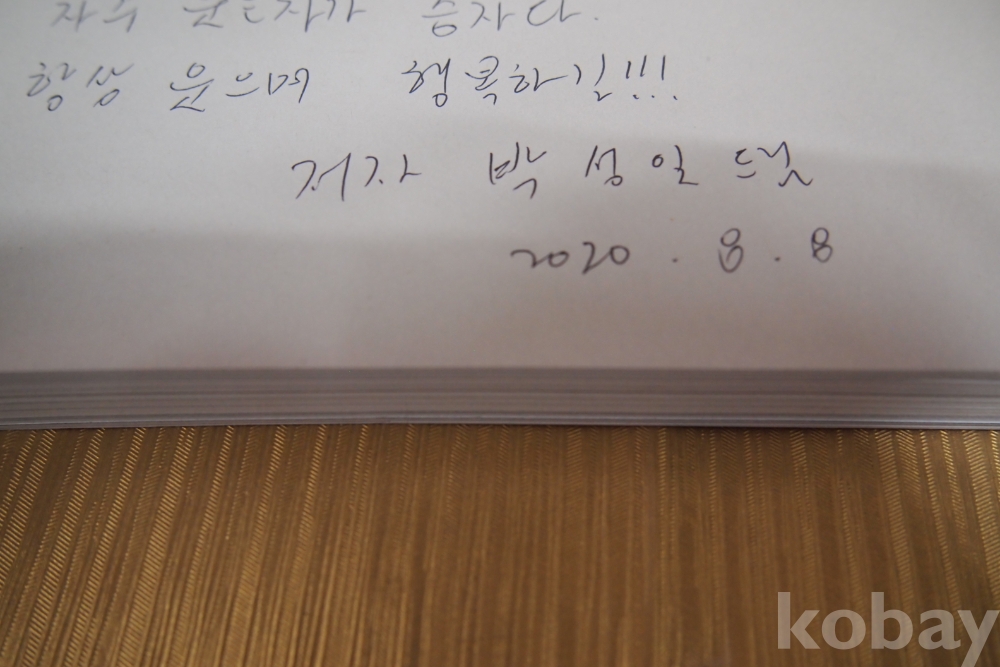 자주 웃는자가 승자다.
항상 웃으며 행복하길!!!
저자 박성일 드림
2020. 8. 8
kobay